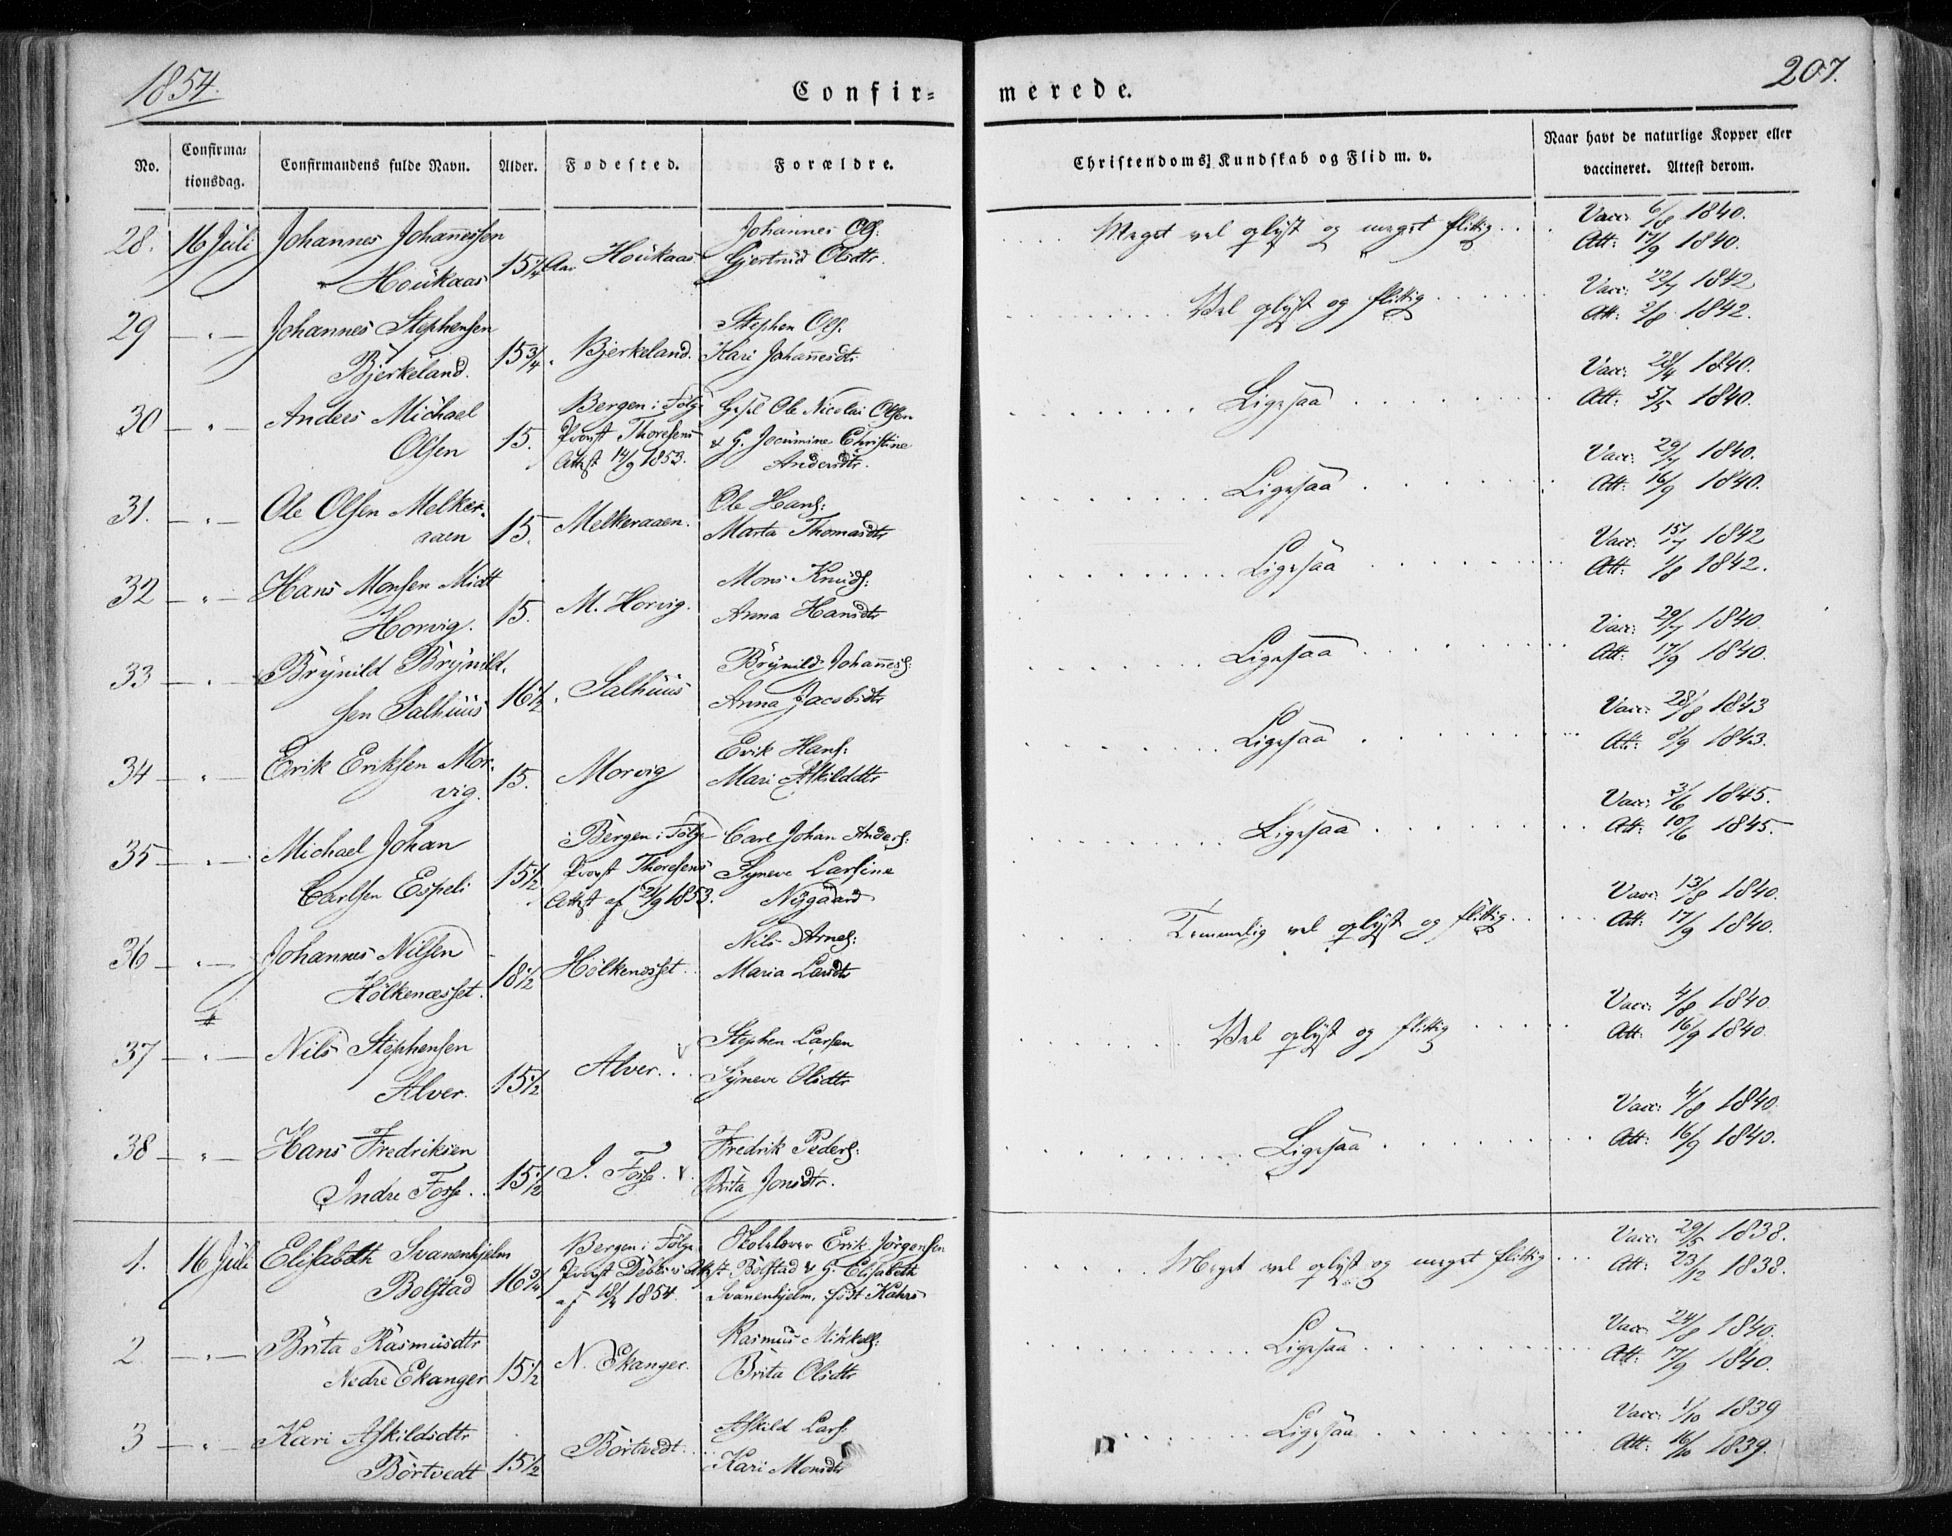 1854.
Confir=
merede.
207.
No.
Confirma=
tionsdag.
Confirmandens fulde Navn.
Alder.
Fødested.
Forældre.
Christendoms-Kundskab og Flid m. v.
Naar havt de naturlige Kopper eller
vaccineret. Attest derom.
28. 16 Juli Johannes Johannessen
Houkaas 15 1/4 Aar Houkaas
Johannes Ols:
Gjertrud Olsdtr
Meget vel oplyst og meget flittig
Vacc: 6/8 1840.
Att: 17/9 1840.
29 " Johannes Stephensen
Bjerkeland. 15 3/4. Bjerkeland.
Stephen Ols:
Kari Johannesdtr
Vel oplyst og flittig
Vacc: 22/7 1842
Att: 2/8 1842.
30 " Anders Michael
Olsen 15.
Bergen i Følge
Provst Thoresens
Attest 14/9 1853.
Ole Nicolai Olsen
& G. Jocumine Christine
Andersdtr.
Ligesaa
Vacc: 28/4 1840.
Att: 5/5 1840.
31. " Ole Olsen Melker-
aaen 15. Melkeraaen.
Ole Hans:
Marta Thomasdtr
Ligesaa
Vacc: 29/7 1840.
Att: 16/9 1840.
32 " Hans Monsen Midt
Horvig. 15. M. Horvig.
Mons Knuds:
Anna Hansdtr
Ligesaa
Vacc: 15/7 1842
Att: 1/8 1842.
33 " Brynild Brynild-
sen Salhuus 16 1/2. Salhuus
Brynild Johanness:
Anna Jacobsdtr
Ligesaa
Vacc: 29/7 1840.
Att: 17/9 1840.
34 " Erik Eriksen Mor-
vig. 15. Morvig
Erik Hans:
Mari Askilddtr
Ligesaa
Vacc: 28/8 1843
Att: /9 1843.
35 " Michael Johan
Carlsen Espeli 15 1/2
Bergen i Følge
Provst Thoresens
Attest af 21/9 1853.
Carl Johan Anders:
Syneve Larsine
Nygaard
Ligesaa
Vacc: 3/6 1845.
Att: 10/6 1845.
36 " Johannes Nilsen
Hølkenæsset. 18 1/2 Hølkenæsset.
Nils Arnes:
Maria Larsdtr
Temmelig vel oplyst og flittig
Vacc: 13/8 1840.
Att: 17/9 1840.
37 " Nils Stephensen
Alver. 15 1/2 Alver.
Stephen Larsen
Syneve Olsdtr
Vel oplyst og flittig
Vacc: 4/8 1840
Att: 16/9 1840.
38 " Hans Fredriksen
Indre Fosse. 15 1/2 I. Fosse.
Fredrik Peders:
Brita Jonsdtr.
Ligesaa
Vacc: 4/8 1840
Att: 16/9 1840.
1. 16 Juli Elisabeth Svanenhjelm
Bolstad 16 3/4
Bergen i Følge
Provst Attest
af 1854.
Skolelærer Erik Jörgensen
Bolstad & G. Elisabeth
Svanenhjelm, født Kahrs
Meget vel oplyst og meget flittig
Vacc: 29/5 1838.
Att: 23/12 1838.
2. " Brita Rasmusdtr
Nedre Ekanger 15 1/2 N. Ekanger.
Rasmus Mikkels:
Brita Olsdtr
Ligesaa
Vacc: 24/8 1840.
Att: 17/9 1840.
3 " Kari Askildsdtr
Börtvedt 15 1/2 Börtvedt.
Askild Lars:
Kari Monsdtr
Ligesaa
Vacc: 1/10 1839
Att: 16/10 1839.